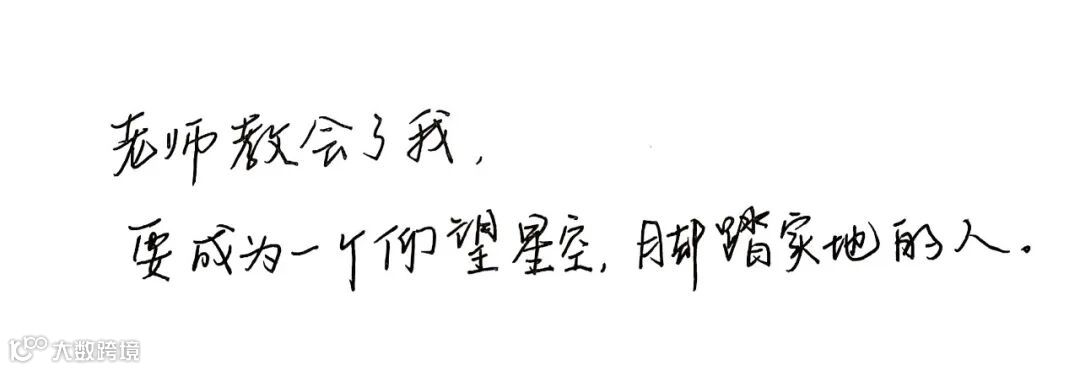 老师教会了我,
要成为一个仰望星空,脚踏实地的人.
大数跨境